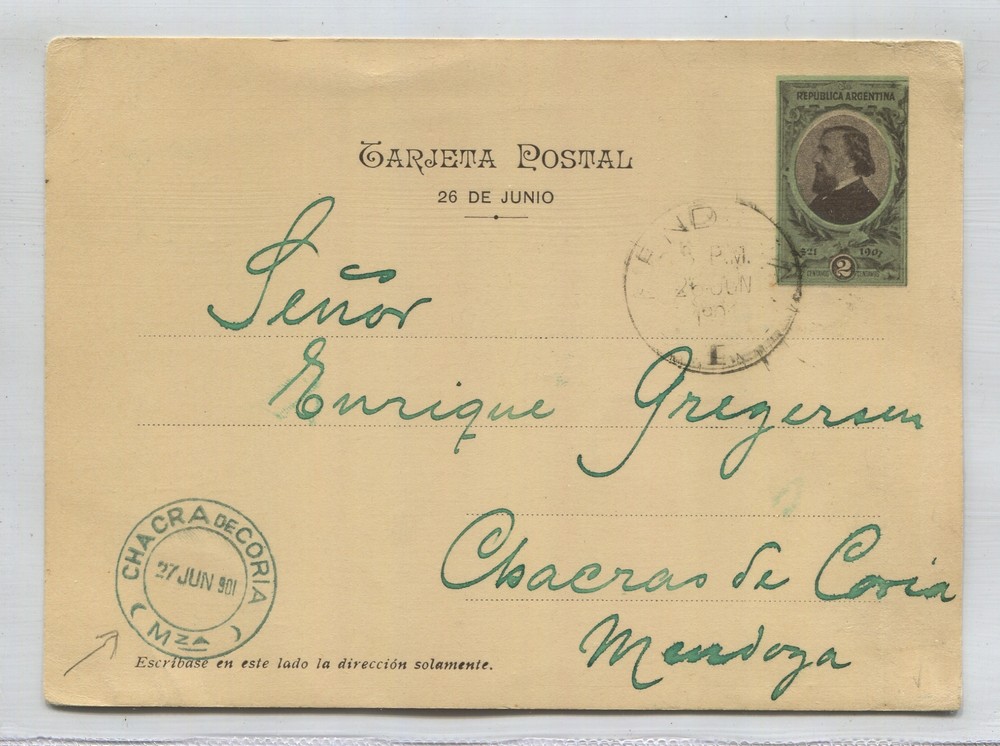 REPUBLICA ARGENTINA
1821 1901
2
TARJETA POSTAL
26 DE JUNIO
P.M.
26 JUN
E
Señor
Enrique Gregersen
Chacras de Coria
Mendoza
CHACRA DE CORIA
27 JUN 901
MZA
Escríbase en este lado la dirección solamente.